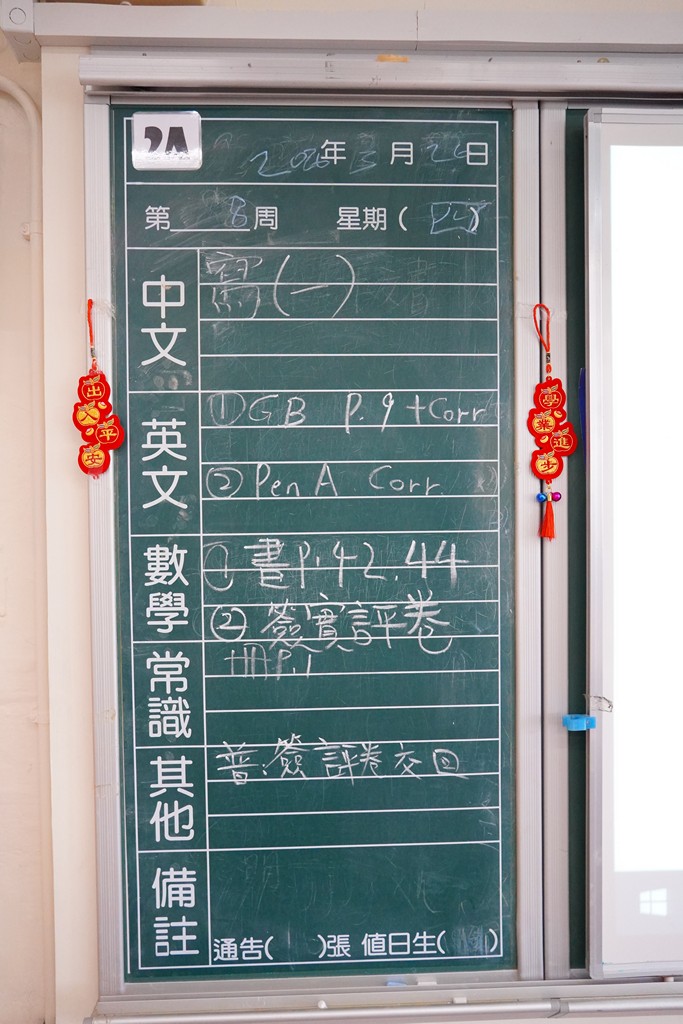 2A
2026年3月26日
第 8 周 星期(四)
中文
寫(一)
英文
①GB P.9 +Corr
②Pen A. Corr.
數學
①書P.42.44
②簽實評卷
常識
冊P.1
其他
普:簽評卷交回
備註
通告( )張 值日生( )
出入平安
學業進步